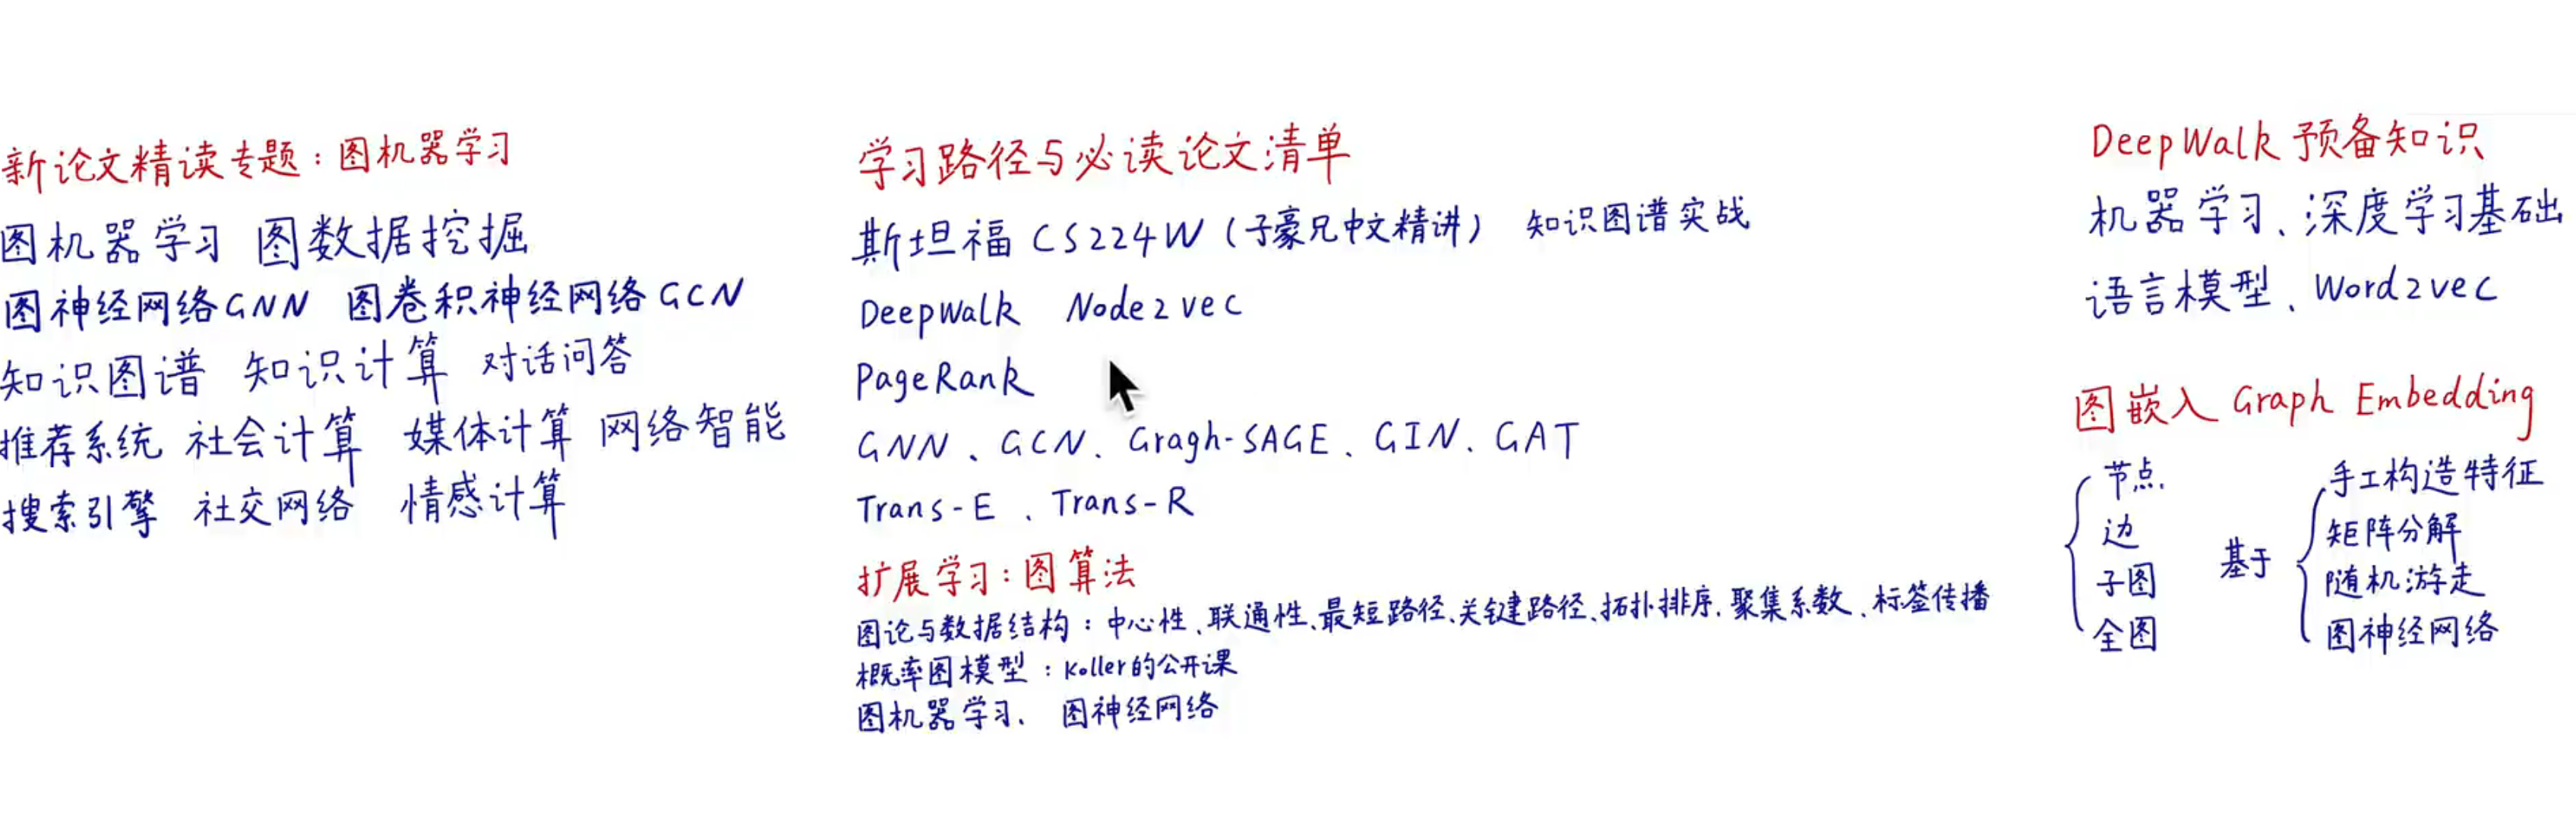 新论文精读专题：图机器学习
图机器学习 图数据挖掘
图神经网络GNN 图卷积神经网络GCN
知识图谱 知识计算 对话问答
推荐系统 社会计算 媒体计算 网络智能
搜索引擎 社交网络 情感计算
学习路径与必读论文清单
斯坦福CS224W（子豪兄中文精讲） 知识图谱实战
DeepWalk Node2vec
PageRank
GNN、GCN、Gragh-SAGE、GIN、GAT
Trans-E、Trans-R
扩展学习：图算法
图论与数据结构：中心性、联通性、最短路径、关键路径、拓扑排序、聚集系数、标签传播
概率图模型：Koller的公开课
图机器学习、图神经网络
DeepWalk预备知识
机器学习、深度学习基础
语言模型、Word2vec
图嵌入 Graph Embedding
节点
边
子图
全图
基于
手工构造特征
矩阵分解
随机游走
图神经网络